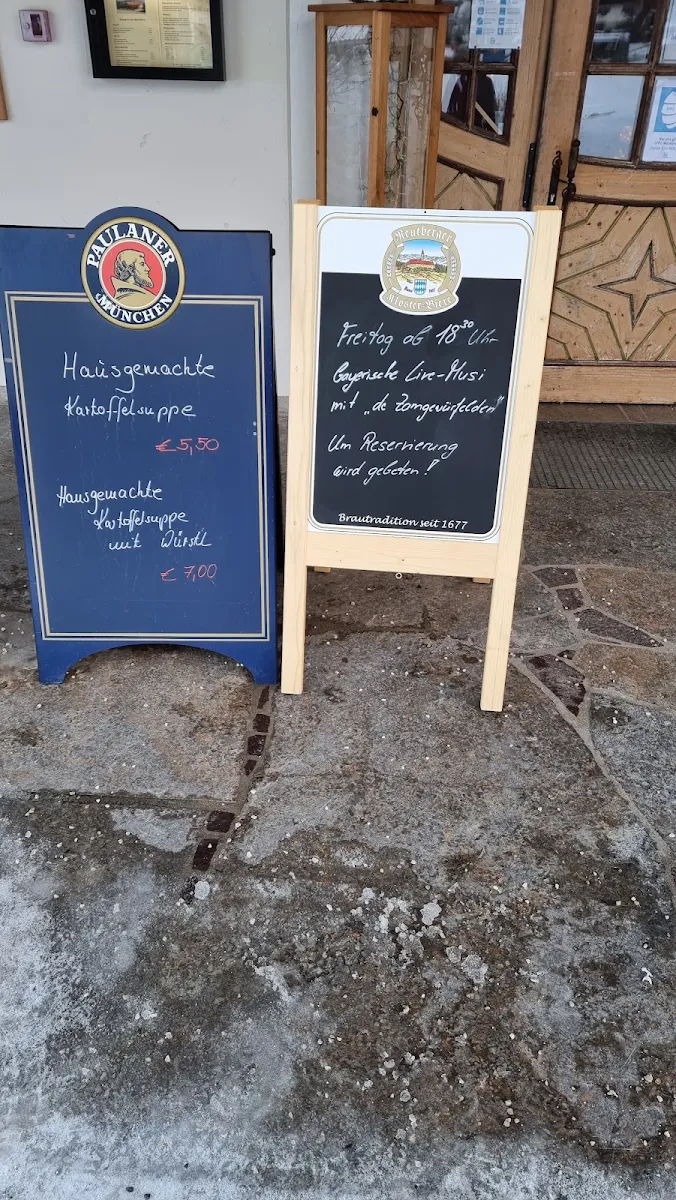 PAULANER
MÜNCHEN
Hausgemachte
Kartoffelsuppe
€ 5,50
Hausgemachte
Kartoffelsuppe
mit Würstl
€ 7,00
Reutberger
Kloster-Biere
Freitag ab 18³⁰ Uhr
Bayerische Live-Musi
mit „de Zamgewürfelden"
Um Reservierung
wird gebeten!
Brautradition seit 1677